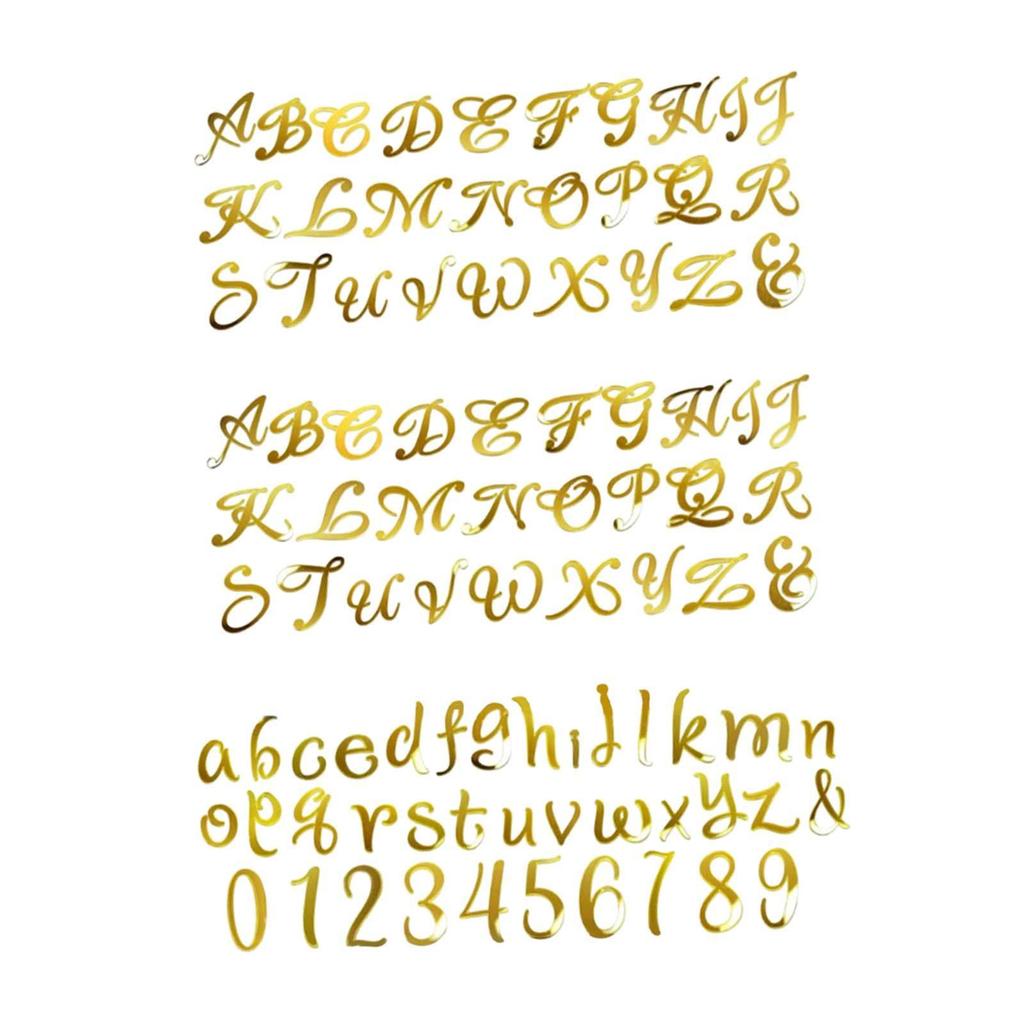 A B C D E F G H I J
K L M N O P Q R
S T U V W X Y Z &
A B C D E F G H I J
K L M N O P Q R
S T U V W X Y Z &
a b c e d f g h i j l k m n
o p q r s t u v w x y z &
0 1 2 3 4 5 6 7 8 9